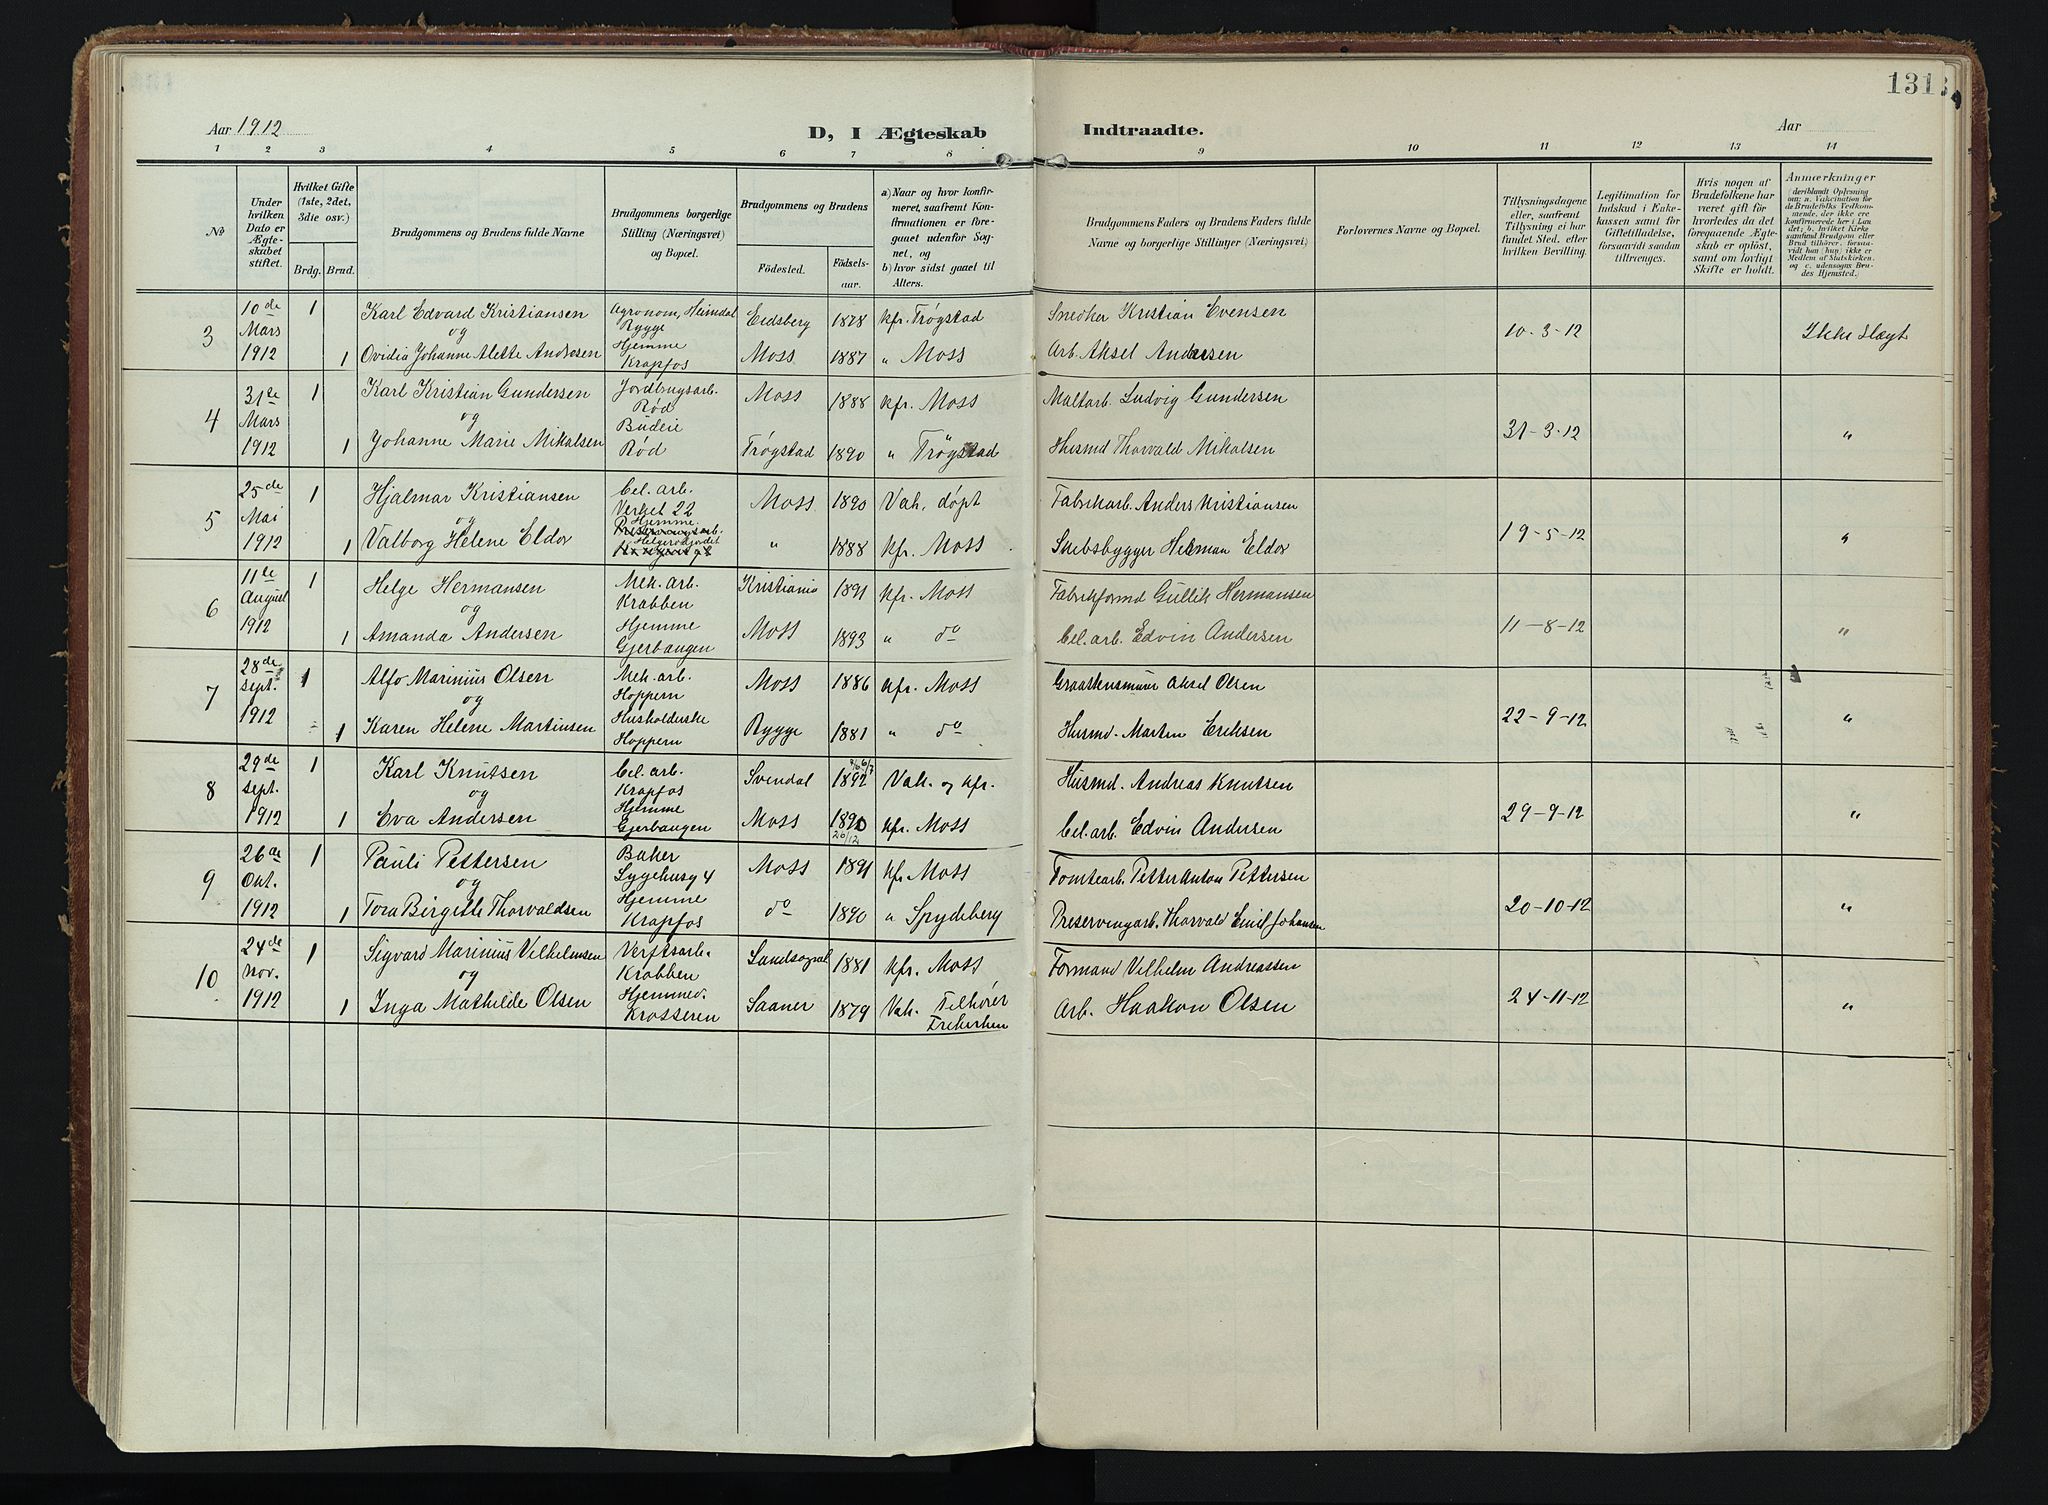 131
Aar 1912
D, I Ægteskab
Indtraadte.
Aar
1 2 3 4 5 6 7 8 9 10 11 12 13 14
No
Under hvilken Dato er Ægteskabet stiftet.
Hvilket Gifte (1ste, 2det, 3die osv.)
Brdg. Brud.
Brudgommens og Brudens fulde Navne
Brudgommens borgerlige Stilling (Næringsvei) og Bopæl.
Brudgommens og Brudens
Födested.
Födsels-aar.
a) Naar og hvor konfirmeret, saafremt Konfirmationen er foregaaet udenfor Sognet, og
b) hvor sidst gaaet til Alters.
Brudgommens Faders og Brudens Faders fulde Navne og borgerlige Stillinger (Næringsvei)
Forlovernes Navne og Bopæl.
Tillysningsdagene eller, saafremt Tillysning ei har fundet Sted, efter hvilken Bevilling.
Legitimation for Indskud i Enkekassen samt for Giftetilladelse, forsaavidt saadan tiltrænges.
Hvis nogen af Brudefolkene har været gift för hvorledes da det foregaaende Ægteskab er oplöst, samt om lovligt Skifte er holdt.
Anmærkninger
(deriblandt Oplysning om: a. Vakcination for de Brudefolks Vedkommende, der ikke ere konfirmerede her i Landet; b. hvilket Kirkesamfund Brudgom eller Brud tilhörer, forsaavidt han (hun) ikke er Medlem af Statskirken, og c. udensogns Brudes Hjemsted.)
3 10de Mars 1912 1 Karl Edvard Kristiansen Agronom, Heimdal Rygge Eidsberg 1878 kfr. Trøgstad Snedker Kristian Evensen 10-3-12 Ikke Slægt
og
1 Ovidia Johanne Alette Andersen Hjemme Krapfos Moss 1887 " Moss Arb. Aksel Andersen
4 31te Mars 1912 1 Karl Kristian Gundersen Jordbrugsarb. Rød Moss 1888 kfr. Moss Maltarb. Ludvig Gundersen 31-3-12 "
og
1 Johanne Marie Mikalsen Budeie Rød Trøgstad 1890 " Trøgstad Husmd Thorvald Mikalsen
5 25de Mai 1912 1 Hjalmar Kristiansen Cel. arb. Verket 22 Moss 1890 Vak. døpt Fabrikarb. Anders Kristiansen 19-5-12 "
og
1 Valborg Helene Eldor Hjemme Helgerødjordet " 1888 kfr. Moss Skibsbygger Herman Eldor
6 11te August 1912 1 Helge Hermansen Mek. arb. Krabben Kristiania 1891 kfr. Moss Fabrikformd Gullik Hermansen 11-8-12 "
og
1 Amanda Andersen Hjemme Gjerbaugen Moss 1893 " do Cel. arb. Edvin Andersen
7 28de sept. 1912 1 Alfo Marinius Olsen Mek. arb. Hoppern Moss 1886 kfr. Moss Aksel Olsen 22-9-12 "
og
1 Karen Helene Martinsen Husholderske Hoppern Rygge 1881 " do Husmd. Martin Eriksen
8 29de sept. 1912 1 Karl Knutsen Cel. arb. Krapfos Svendal 1892 Vak. og kfr. Husmd. Andreas Knutsen 29-9-12 "
og
1 Eva Andersen Hjemme Gjerbaugen Moss 1890 20/12 kfr. Moss Cel. arb. Edvin Andersen
9 26de Okt. 1912 1 Pauli Pettersen Baker Sygehusg 4 Moss 1891 kfr. Moss Tomtearb. Petter Anton Pettersen 20-10-12 "
og
1 Tora Birgitte Thorvaldsen Hjemme Krapfos do 1890 " Spydeberg Preservingarb. Thorvald Emil Johansen
10 24de Nov. 1912 1 Sigvard Marinius Vilhelmsen Verftsarb. Krabben Landsognet 1881 kfr. Moss Formand Vilhelm Andreassen 24-11-12 "
og
1 Inga Mathilde Olsen Hjemmev. Krosseren Saaner 1879 Vak. Tilhører Frikirken Arb. Haakon Olsen